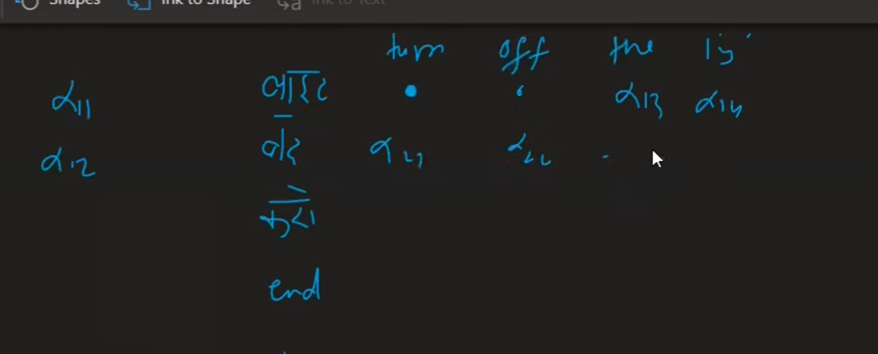 Shapes Ink to Shape Ink to Text
turn off the lig
α11 लाईट α13 α14
α12 बंद α21 α22
करो
end